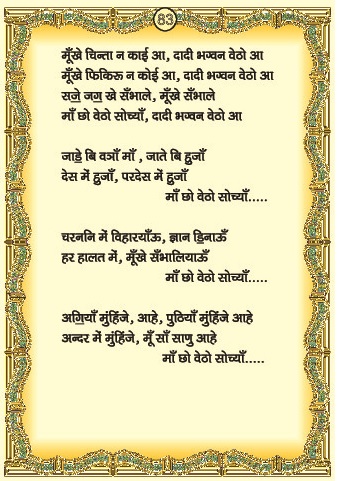 83
मूँखे चिन्ता न काई आ, दादी भग्वन वेठो आ
मूँखे फिकिरू न कोई आ, दादी भग्वन वेठो आ
सजे॒ जग॒ खे सँभाले, मूँखे सँभाले
माँ छो वेठो सोच्याँ, दादी भग्वन वेठो आ
जाडे॒ बि वञाँ माँ , जाते बि हुजाँ
देस में हुजाँ, परदेस में हुजाँ
माँ छो वेठो सोच्याँ.....
चरननि में विहारयाँऊ, ज्ञान डि॒नाऊँ
हर हालत में, मूँखे सँभालियाऊँ
माँ छो वेठो सोच्याँ.....
अगि॒याँ मुंहिंजे, आहे, पुठियाँ मुंहिंजे आहे
अन्दर में मुंहिंजे, मूँ साँ साणु आहे
माँ छो वेठो सोच्याँ.....